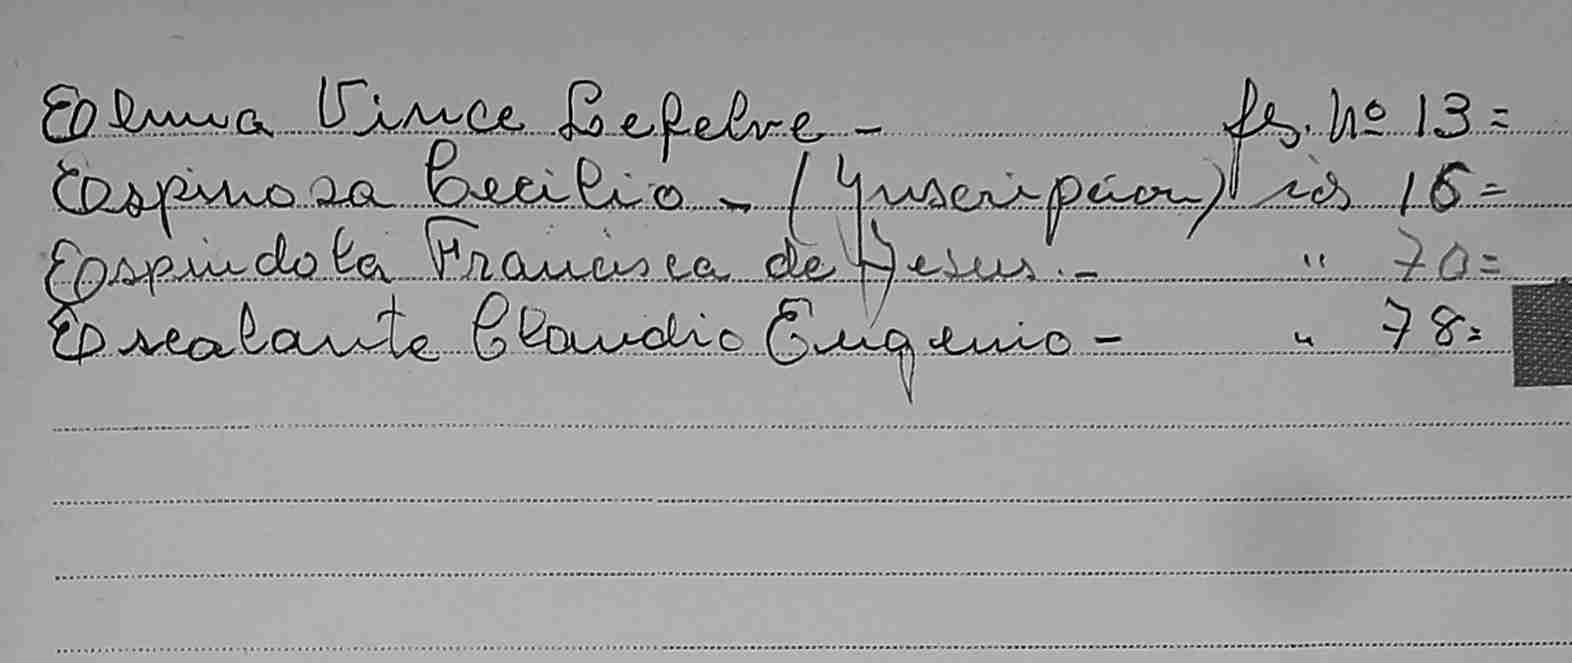 Elma Vince Lefelve - fs. Nº 13=
Espinosa Cecilio - (Ynscripcion) id 16=
Espindola Francisca de Jesus.- " 70=
Escalante Claudio Eugenio - " 78=